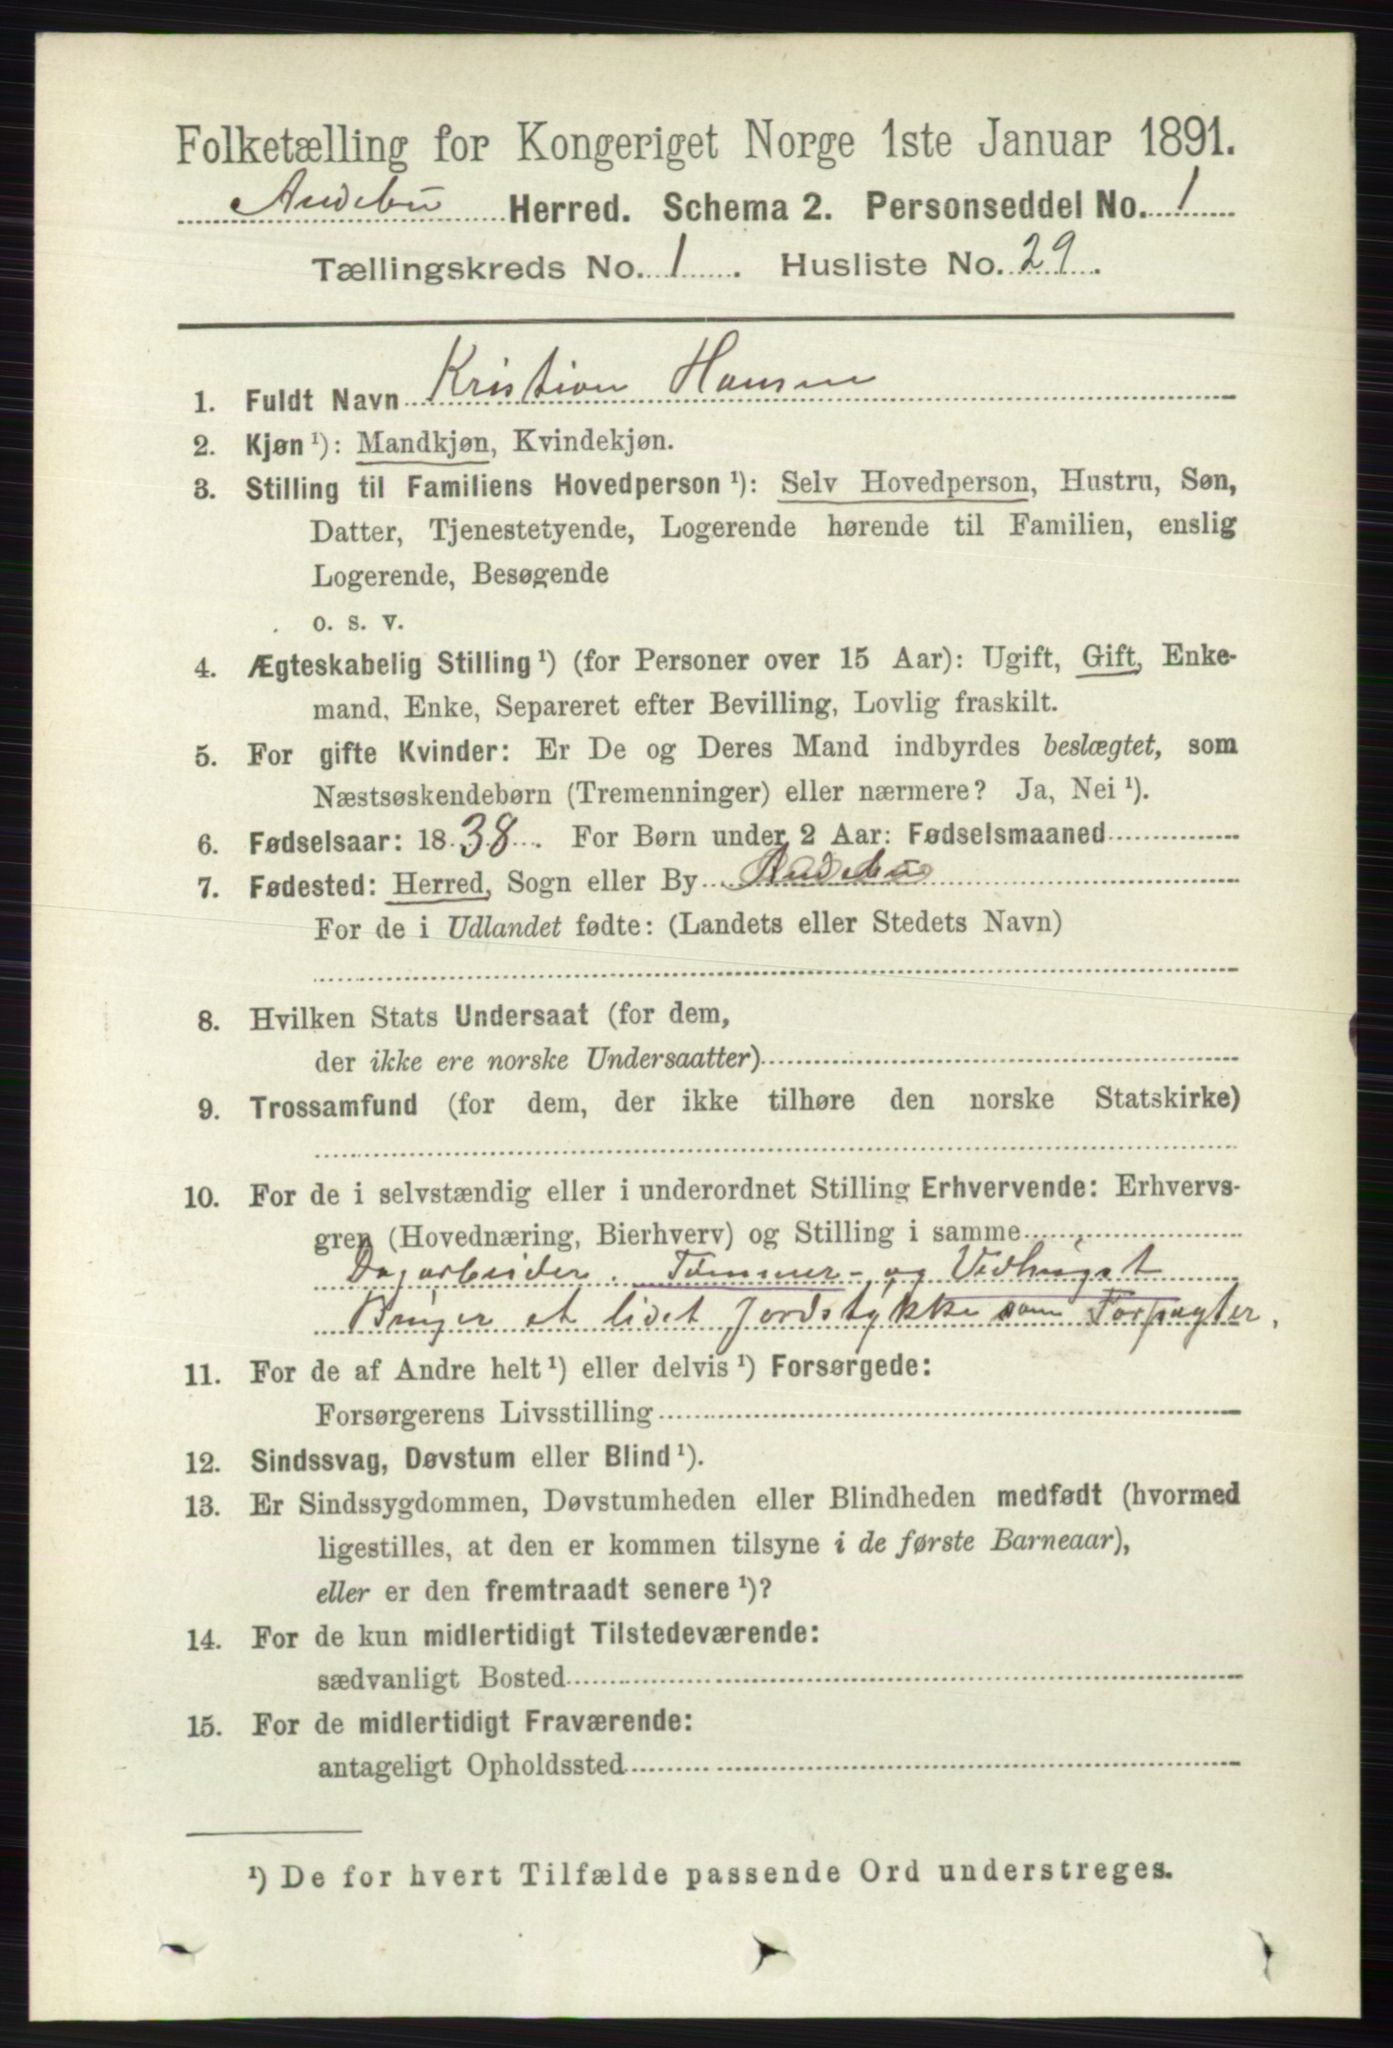 Folketælling for Kongeriget Norge 1ste Januar 1891.
Andebu Herred. Schema 2. Personseddel No. 1
Tællingskreds No. 1. Husliste No. 29.
1. Fuldt Navn Kristian Hansen
2. Kjøn ¹): Mandkjøn, Kvindekjøn.
3. Stilling til Familiens Hovedperson ¹): Selv Hovedperson, Hustru, Søn,
Datter, Tjenestetyende, Logerende hørende til Familien, enslig
Logerende, Besøgende
o. s. v.
4. Ægteskabelig Stilling ¹) (for Personer over 15 Aar): Ugift, Gift, Enke-
mand, Enke, Separeret efter Bevilling, Lovlig fraskilt.
5. For gifte Kvinder: Er De og Deres Mand indbyrdes beslægtet, som
Næstsøskendebørn (Tremenninger) eller nærmere? Ja, Nei ¹).
6. Fødselsaar: 1838. For Børn under 2 Aar: Fødselsmaaned
7. Fødested: Herred, Sogn eller By Andebu
For de i Udlandet fødte: (Landets eller Stedets Navn)
8. Hvilken Stats Undersaat (for dem,
der ikke ere norske Undersaatter)
9. Trossamfund (for dem, der ikke tilhøre den norske Statskirke)
10. For de i selvstændig eller i underordnet Stilling Erhvervende: Erhvervs-
gren (Hovednæring, Bierhverv) og Stilling i samme
Dagarbeider. Tømmer- og Vedhugst
Bruger et lidet Jordstykke som Forpagter.
11. For de af Andre helt ¹) eller delvis ¹) Forsørgede:
Forsørgerens Livsstilling
12. Sindssvag, Døvstum eller Blind ¹).
13. Er Sindssygdommen, Døvstumheden eller Blindheden medfødt (hvormed
ligestilles, at den er kommen tilsyne i de første Barneaar),
eller er den fremtraadt senere ¹)?
14. For de kun midlertidigt Tilstedeværende:
sædvanligt Bosted
15. For de midlertidigt Fraværende:
antageligt Opholdssted
¹) De for hvert Tilfælde passende Ord understreges.